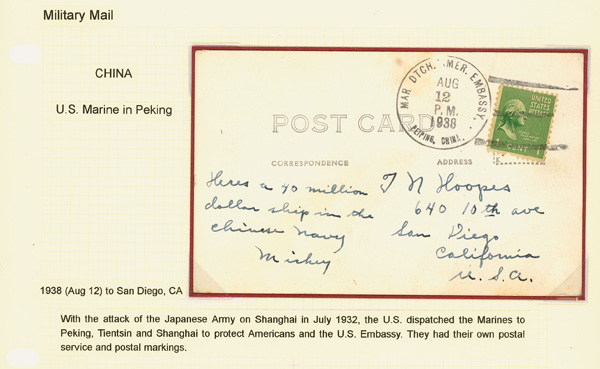 Military Mail
CHINA
U.S. Marine in Peking
MAR. DTCH. AMER. EMBASSY.
AUG
12
P.M.
1938
PEIPING, CHINA.
UNITED
STATES
POSTAGE
1 CENT
POST CARD
CORRESPONDENCE
ADDRESS
Heres a 40 million
dollar ship in the
Chinese Navy
Mickey
T N Hoopes
640 10th ave
San Diego
California
U.S.A.
1938 (Aug 12) to San Diego, CA
With the attack of the Japanese Army on Shanghai in July 1932, the U.S. dispatched the Marines to
Peking, Tientsin and Shanghai to protect Americans and the U.S. Embassy. They had their own postal
service and postal markings.